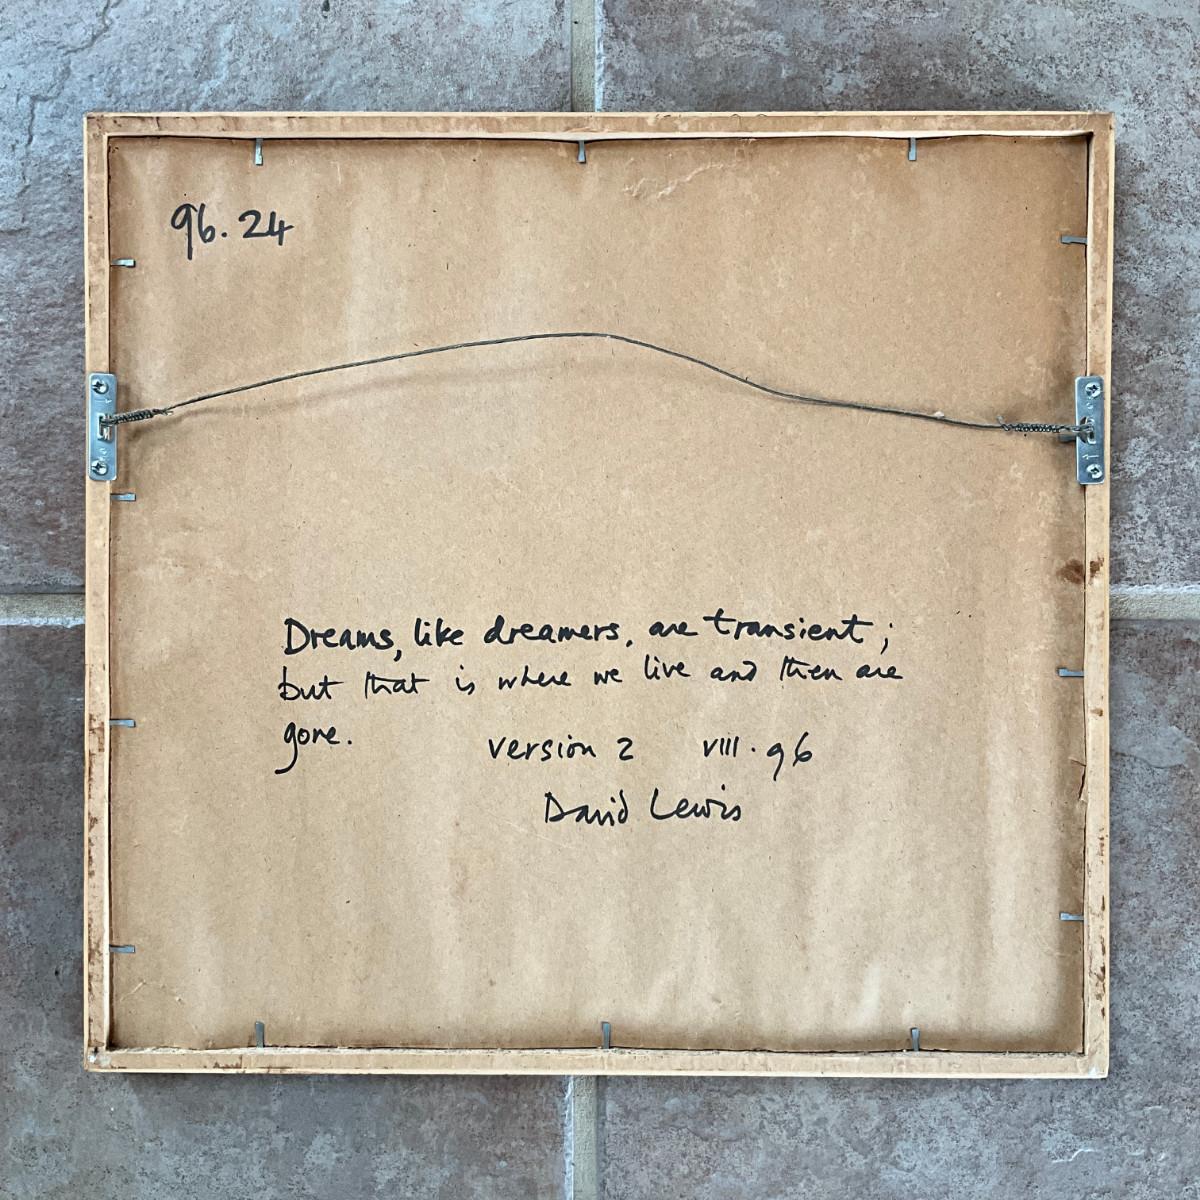 96.24
Dreams, like dreamers, are transient;
but that is where we live and then are
gone.
version 2 VIII.96
David Lewis